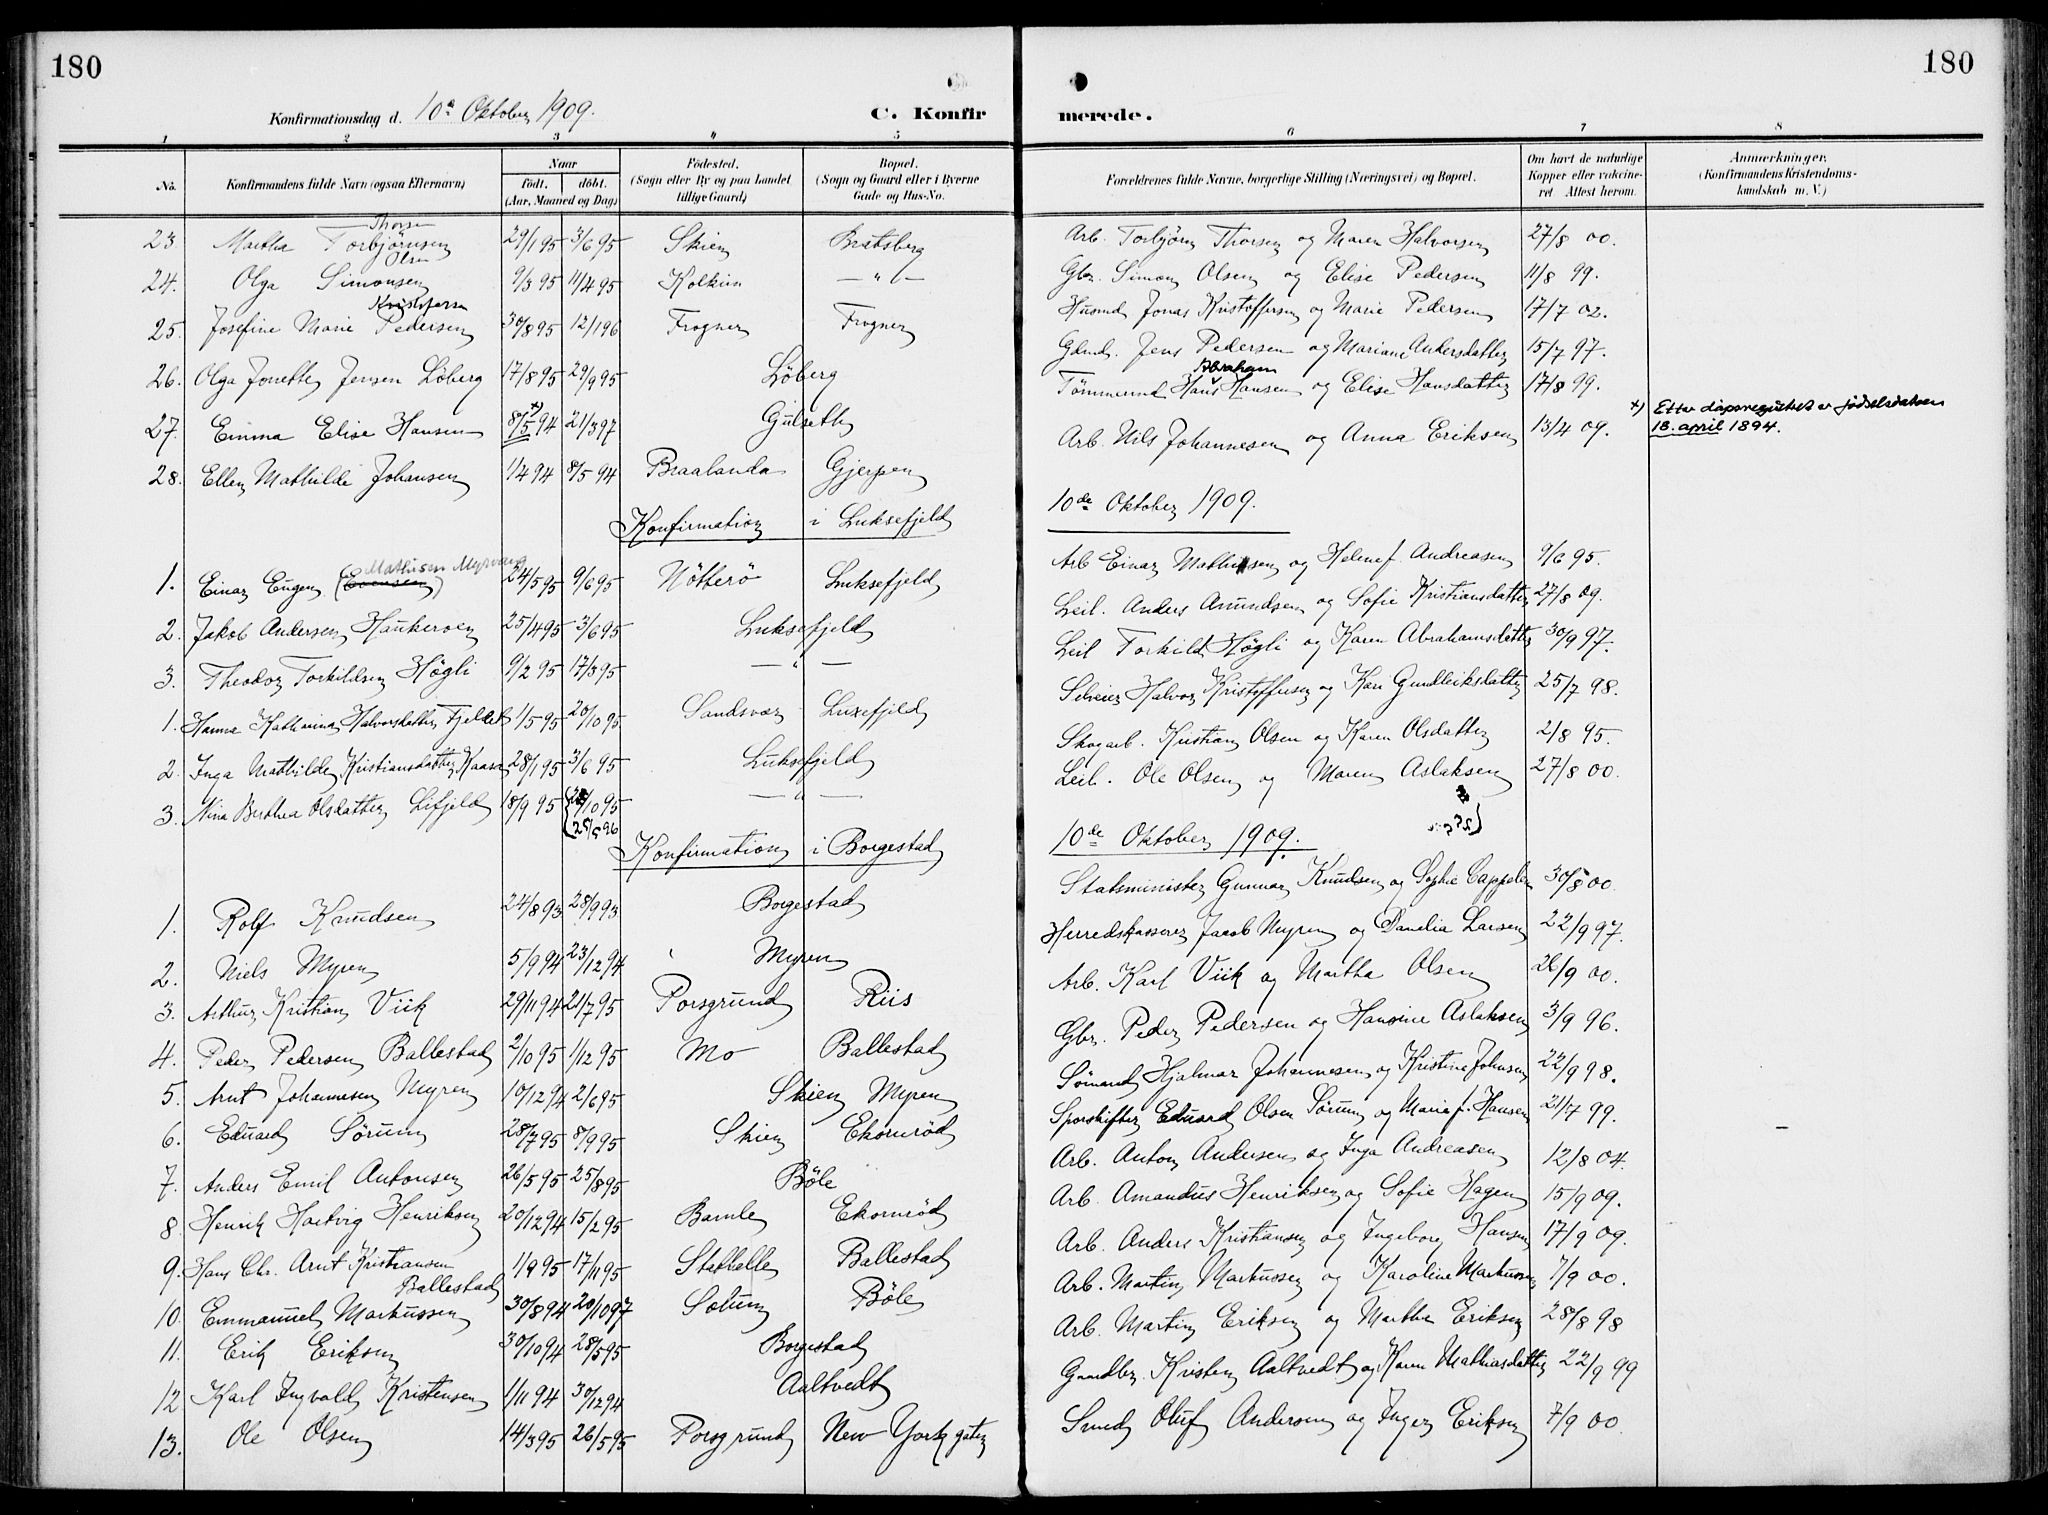 180
180
Konfirmationsdag d. 10de Oktober 1909.
C. Konfirmerede.
1 2 3 4 5 6 7 8
No.
Konfirmandens fulde Navn (ogsaa Efternavn)
Naar
födt. döbt.
(Aar, Maaned og Dag)
Födested.
(Sogn eller By og paa Landet tillige Gaard)
Bopæl.
(Sogn og Gaard eller i Byerne Gade og Hus-No.
Forældrenes fulde Navne, borgerlige Stilling (Næringsvei) og Bopæl.
Om havt de naturlige Kopper eller vaccineret Attest herom.
Anmærkninger.
(Konfirmandens Kristendomskundskab m. V.)
23. Martha Torbjörnsen Thorsen 29/1 95 3/6 95 Skien Bratsberg Arb. Torbjörn Thorsen og Maren Halvorsen 27/8 00.
24. Olga Simonsen Olsen 9/3 95 11/4 95 Kolkin — " — Gbr. Simon Olsen og Elise Pedersen 11/8 99.
25. Josefine Marie Pedersen 30/8 95 12/1 96 Frogner Frogner Husmd Jonas Kristoffersen og Marie Pedersen 17/7 02.
26. Olga Jonette Jensen Löberg 17/8 95 29/9 95 Löberg Gdmd. Jens Pedersen og Mariane Andersdatter 15/7 97.
27. Emma Elise Hansen 8/5 94 x) 21/3 97 Gulseth Tömmermd Hans Abraham Hansen og Elise Hansdatter 17/8 99.
x) Etter dåpsregistret er fødselsdatoen 18. april 1894.
28. Ellen Mathilde Johansen 1/4 94 8/5 94 Braalanda Gjerpen Arb. Nils Johannesen og Anna Eriksen 13/4 09.
Konfirmation i Luksefjeld 10de Oktober 1909.
1. Einar Eugen (Evensen) Mathisen Myrvang 24/5 95 9/6 95 Nötterö Luksefjeld Arb Einar Mathisen og Helene f. Andreasen 9/6 95.
2. Jakob Andersen Haukeroen 25/4 95 3/6 95 Luksefjeld Leil. Anders Amundsen og Sofie Kristiansdatter 27/8 09.
3. Theodor Torkildsen Høgli 9/2 95 17/3 95 — " — Leil Torkild Høgli og Karen Abrahamsdatter 30/9 97.
1. Hanna Katharina Halvorsdatter Fjellet 1/5 95 20/10 95 Sandsvær Luxefjeld Selveier Halvor Kristoffersen og Kari Gundleiksdatter 25/7 98.
2. Inga Mathilde Kristiansdatter Kaasa 28/1 95 3/6 95 Luksefjeld Skogarb. Kristian Olsen og Karen Olsdatter 2/8 95.
3. Nina Berthea Olsdatter Lifjeld 18/9 95 /10 95 (25/5 96 — " — Leil. Ole Olsen og Maren Aslaksen 27/8 00.
Konfirmation i Borgestad 10de Oktober 1909.
1. Rolf Knudsen 24/8 93 28/9 93 Borgestad Statsminister Gunnar Knudsen og Sophie Cappelen 30/8 00.
2. Niels Myren 5/9 94 23/12 94 Myren Herredskasserer Jacob Myren og Danelia Larsen 22/9 97.
3. Arthur Kristian Viik 29/11 94 21/7 95 Porsgrund Riis Arb. Karl Viik og Martha Olsen 26/9 00.
4. Peder Pedersen Ballestad 2/10 95 1/12 95 Mo Ballestad Gbr. Peder Pedersen og Hansine Aslaksen 3/9 96.
5. Arnt Johannesen Myren 10/12 94 2/6 95 Skien Myren Sömand Hjalmar Johannesen og Kristine Johnsen 22/9 98.
6. Eduard Sörum 28/7 95 8/9 95 Skien Ekornröd Sporskifter Eduard Olsen Sörum og Marie f. Hansen 21/7 99.
7. Anders Emil Antonsen 26/5 95 25/8 95 Böle Arb. Anton Andersen og Inga Andreasen 12/8 04.
8. Henrik Hartvig Henriksen 20/12 94 15/2 95 Bamle Ekornröd Arb. Amandus Henriksen og Sofie Hagen 15/9 09.
9. Hans Chr. Arnt Kristiansen Ballestad 1/9 95 17/11 95 Stathelle Ballestad Arb. Anders Kristiansen og Ingeborg Hansen 17/9 09.
10. Emmanuel Markussen 30/8 94 20/10 97 Solum Böle Arb. Martin Markussen og Karoline Markussen 7/9 00.
11. Erik Eriksen 30/10 94 28/5 95 Borgestad Arb. Martin Eriksen og Martha Eriksen 28/8 98
12 Karl Ingvald Kristensen 1/11 94 30/12 94 Aaltvedt Gaardbr. Kristen Aaltvedt og Karen Mathiasdatter 22/9 99
13. Ole Olsen 14/3 95 26/5 95 Porsgrund New York gaten Smed Oluf Andersen og Inger Eriksen 7/9 00.